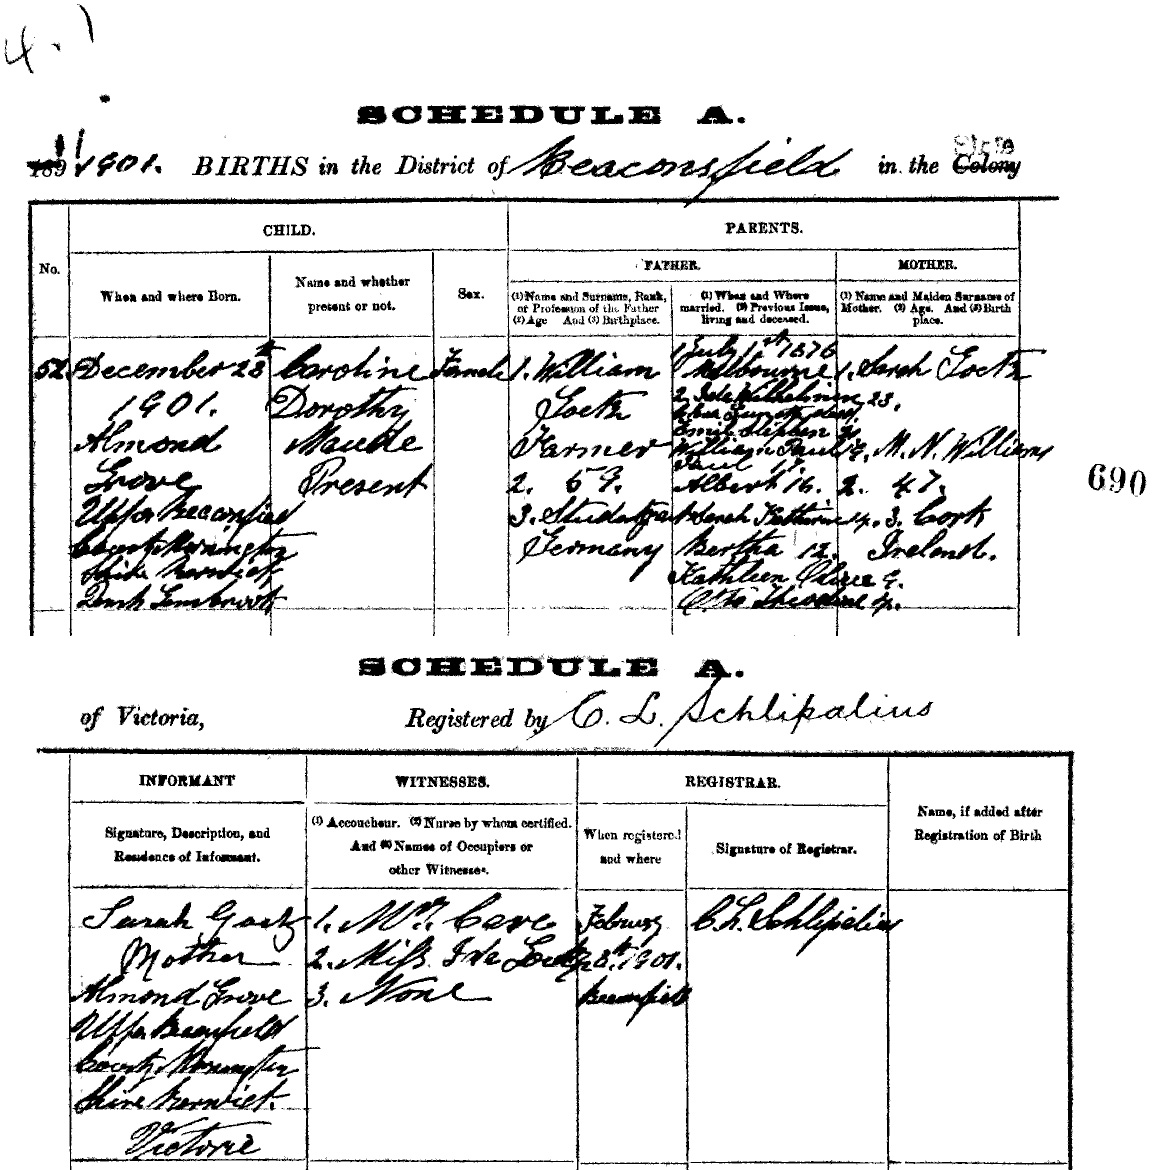 4.1
SCHEDULE A.
189 1901. BIRTHS in the District of Beaconsfield in the Colony State
CHILD.
PARENTS.
No.
When and where Born.
Name and whether
present or not.
Sex.
FATHER.
MOTHER.
(1) Name and Surname, Rank,
or Profession of the Father
(2) Age And (3) Birthplace.
(1) When and Where
married. (2) Previous Issue,
living and deceased.
(1) Name and Maiden Surname of
Mother. (2) Age. And (3) Birth
place.
52.
December 28th
1901.
Almond
Grove
Upper Beaconsfield
County Mornington
Shire Berwick
Caroline
Dorothy
Maude
Present
Female
1. William
Goetz
Farmer
2. 59.
3.
Germany
1 July 1st 1876
Melbourne
2. Ida Wilhelmina 23.
Emil Stephen
William Paul 19.
Paul 17.
Albert 16.
Sarah Katherine 14.
Bertha 12.
Kathleen Olive 9.
Otto Theodore 4.
1. Sarah Goetz
M. N. Williams
2. 47.
3. Cork
Ireland.
690
SCHEDULE A.
of Victoria, Registered by C. L. Schlipalius
INFORMANT
WITNESSES.
REGISTRAR.
Name, if added after
Registration of Birth
Signature, Description, and
Residence of Informant.
(1) Accoucheur. (2) Nurse by whom certified.
And (3) Names of Occupiers or
other Witnesses.
When registered
and where
Signature of Registrar.
Sarah Goetz
Mother
Almond Grove
Upper Beaconsfield
County Mornington
Shire Berwick.
Victoria
1. Mrs. Cave
2. Miss Ida Goetz
3. None
February
28th 1901.
Beaconsfield
C. L. Schlipalius